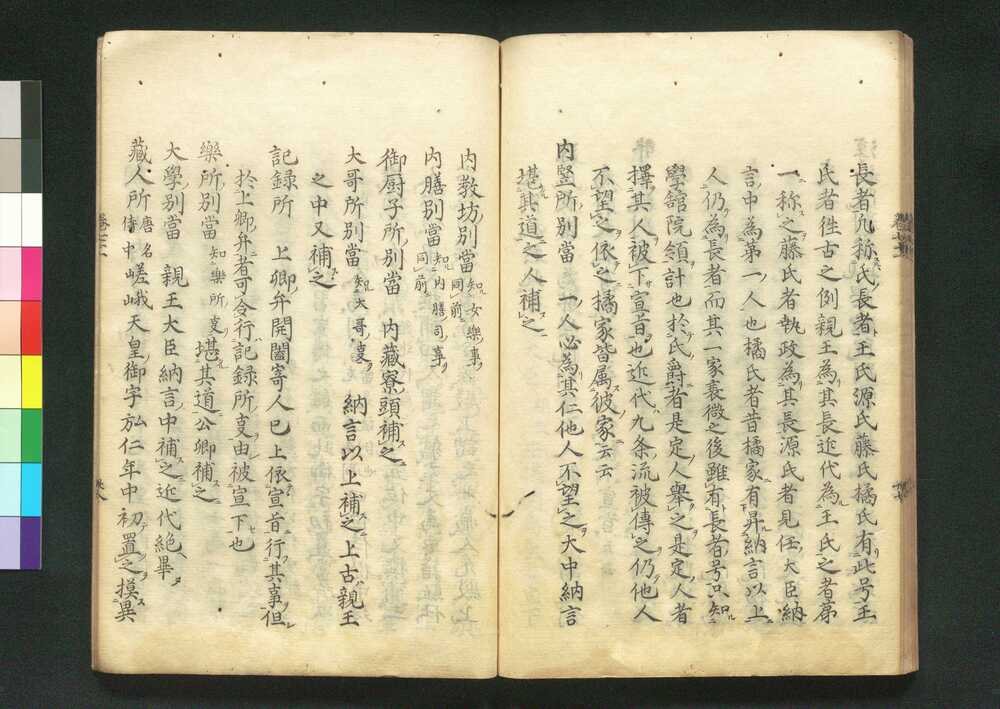 長者凡称氏長者王氏源氏藤氏橘氏有此号王
氏者往古之例親王為其長近代為王氏之者第
一称之藤氏者執政為其長源氏者見任大臣納
言中為第一人也橘氏者昔橘家有昇納言以上
人仍為長者而其一家衰微之後雖有長者号只知
學館院領計也於氏爵者是定人舉之是定人者
擇其人被下宣旨也近代九条流被傳之仍他人
不望之依之橘家當属彼家云云
内竪所別當 一人必為其仁他人不望之大中納言
堪其道之人補之
内教坊別當 知女樂事 同前
内膳別當 知内膳司事 同前
御厨子所別當 内藏寮頭補之
大哥所別當 知大哥叓 納言以上補之上古親王
之中又補之
記録所 上卿弁開闔寄人已上依宣旨行其事但
於上卿弁者可令行記録所叓由被宣下也
樂所別當 知樂所叓 堪其道公卿補之
大學別當 親王大臣納言中補之近代絶畢
藏人所 唐名侍中 嵯峨天皇御宇弘仁年中初置之摸異